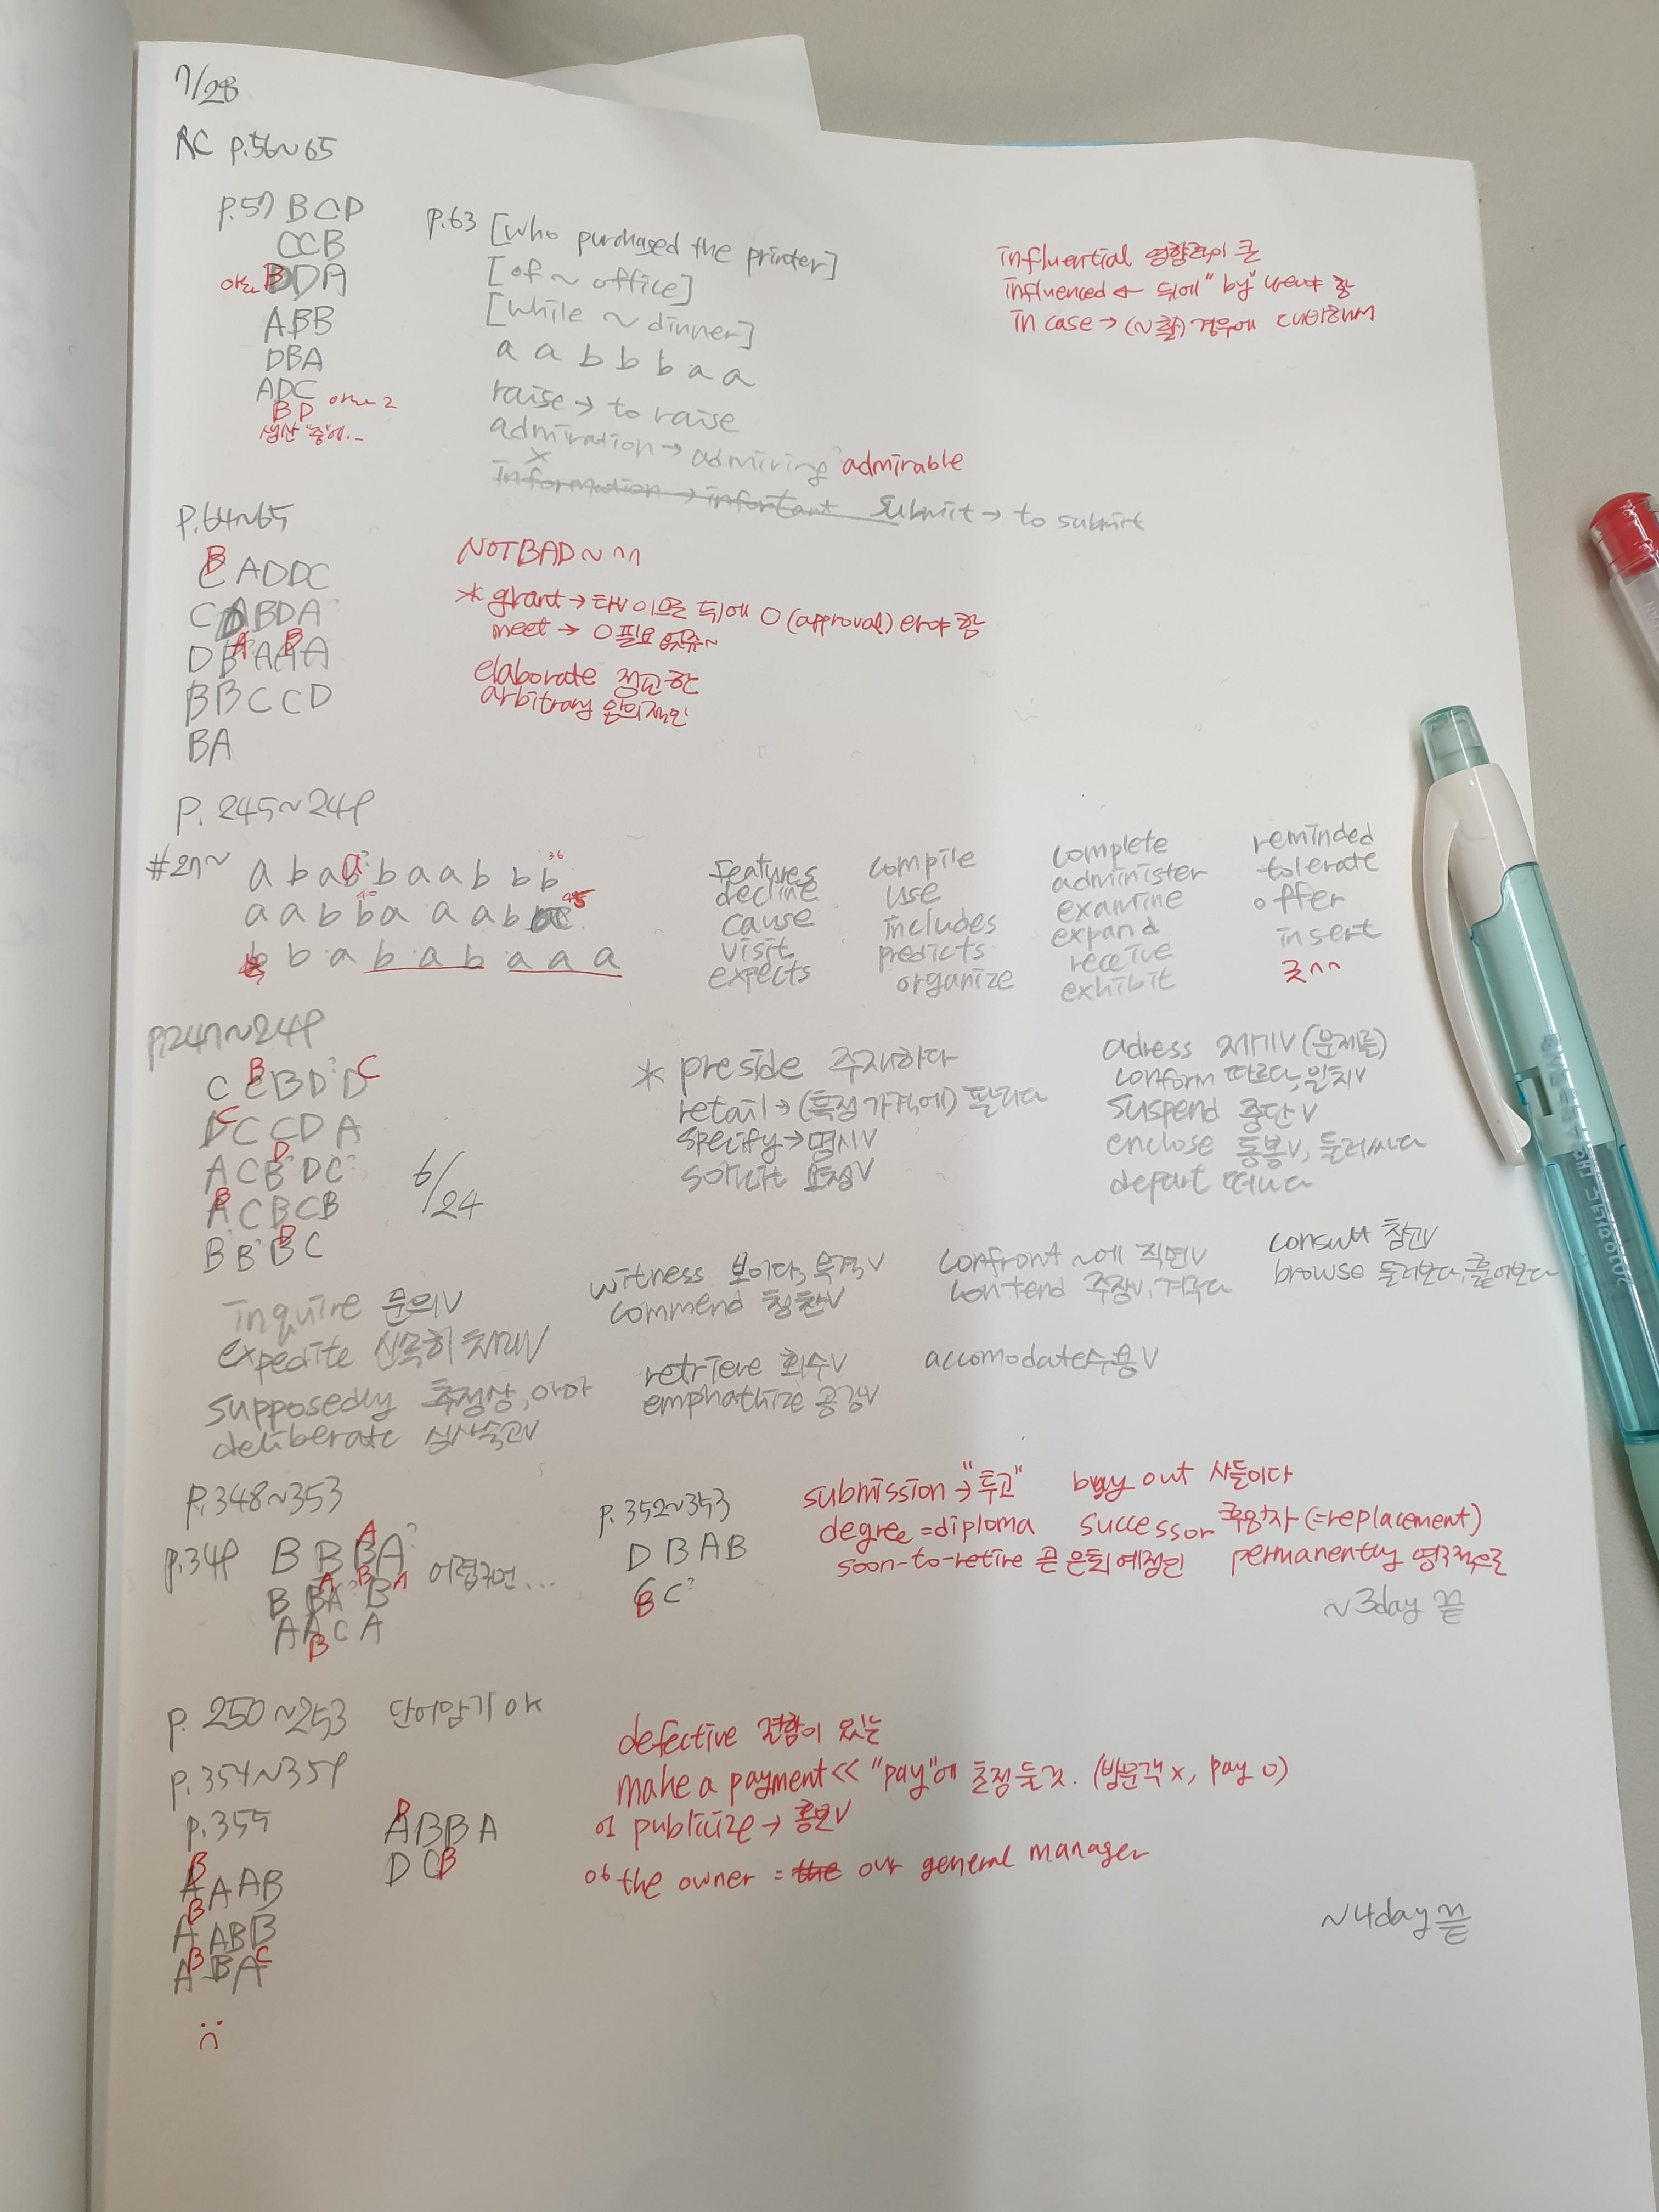 7/28
AC p.56~65
p.57 BCD
CCB
BDA
ABB
DBA
ADC
BD
생산 "중"에..
p.63 [who purchased the printer]
[of ~ office]
[while ~ dinner]
a a b b b a a
raise → to raise
admiration → admiring? admirable
submit → to submit
influential 영향력이 큰
influenced ← 뒤에 "by" 나와야 함
in case → (~할) 경우에 대비해서
p.64~65
B
C ADDC
C A B D A?
D B A A A
A B
B B C C D
B A
NOT BAD ~ ^^
* grant → 타V 이므로 뒤에 O (approval) 와야 함
meet → O 필요 없쥬~
elaborate 정교한
arbitrary 임의적인
p. 245~249
#27~
a b a a? b a a b b b 36
a a b b a a a b a 45
40
b b a b a b a a a
features
decline
cause
visit
expects
compile
use
includes
predicts
organize
complete
administer
examine
expand
receive
exhibit
reminded
tolerate
offer
insert
굿^^
p.247~249
C C B D? D
B C
D C C D A
C
A C B? D C?
D
A C B C B
B
B B? B C
D
6/24
* preside 주재하다
retail → (특정 가격에) 팔리다
specify → 명시V
solicit 요청V
adress 제기V (문제를)
conform 따르다, 일치V
suspend 중단V
enclose 동봉V, 둘러싸다
depart 떠나다
inquire 문의V
expedite 신속히 처리V
supposedly 추정상, 아마
deliberate 심사숙고V
witness 보이다, 목격V
commend 칭찬V
retrieve 회수V
emphathize 공감V
confront ~에 직면V
contend 주장V, 겨루다
accomodate 수용V
consult 참고V
browse 둘러보다, 훑어보다
p.348~353
p.349 B B B A?
A
B B A? B
A B A
A A C A
B
어렵구먼...
p.352~353
D B A B
C C?
B
submission → "투고"
degree = diploma
soon-to-retire 곧 은퇴 예정인
buy out 사들이다
successor 후임자 (=replacement)
permanently 영구적으로
~3day 끝
p. 250~253 단어암기 OK
p.354~359
p.355
B
A A A B
B
A A B B
B C
A B A
D
A B B A
D C B
defective 결함이 있는
make a payment << "pay"에 초점 둘것. (방문객 x, pay o)
01 publicize → 홍보V
06 the owner = the our general manager
~4day 끝
:(